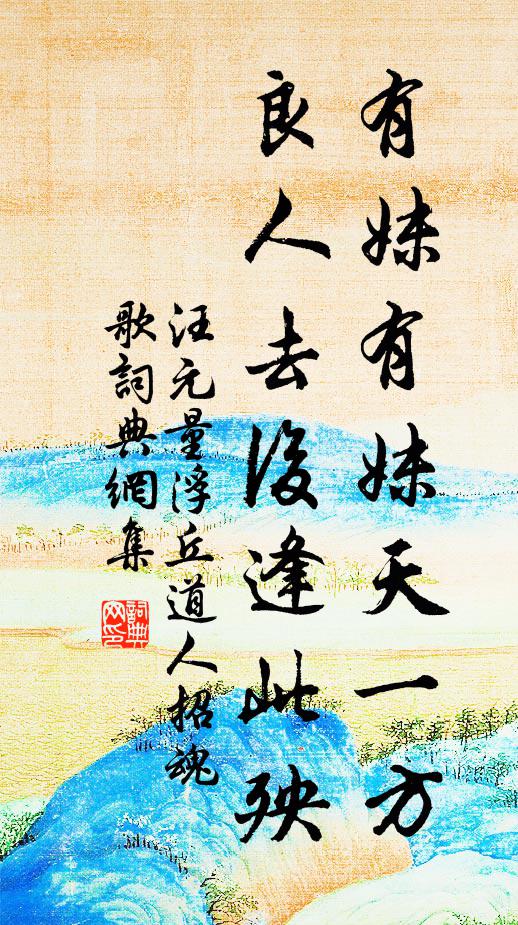 有妹有妹天一方
良人去後逢此殃
汪元量浮丘道人招魂
歌詞典網集
詞典網印